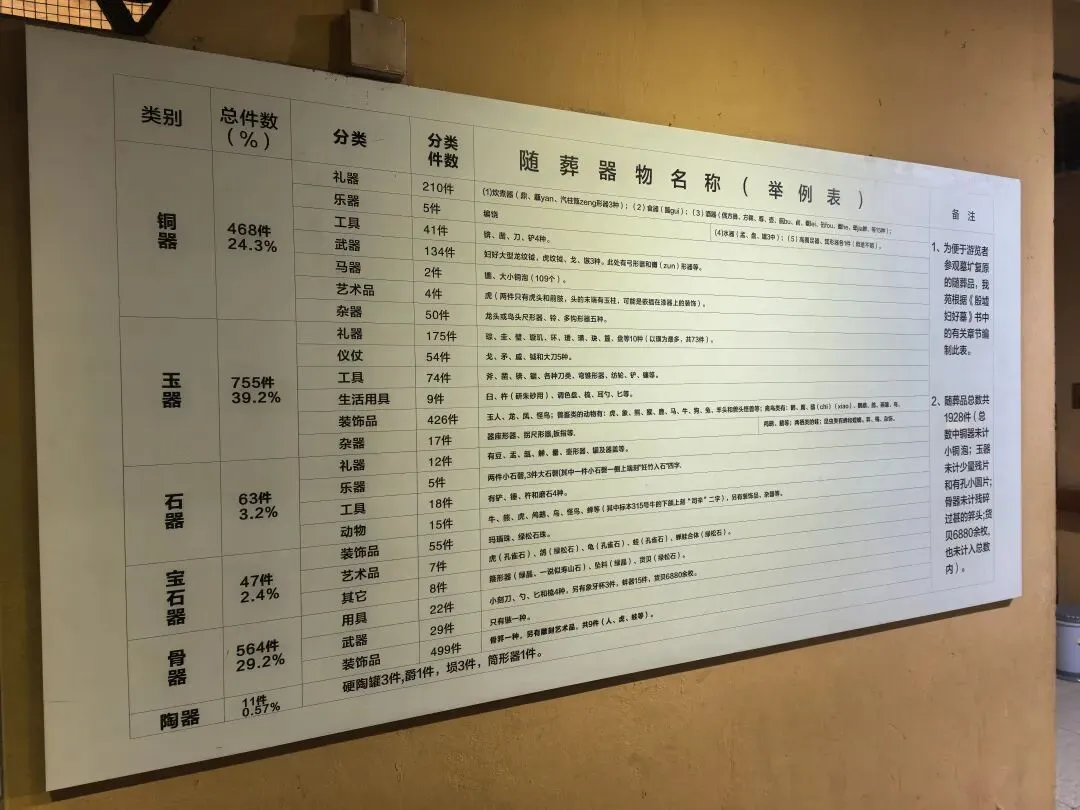 类别 总件数（％） 分类 分类件数 随葬器物名称（举例表） 备注
铜器 468件 24.3%
礼器 210件 (1)炊煮器（鼎、甗yan、汽柱甑zeng形器3种）；（2）食器（簋gui）；（3）酒器
(4)水器（盂、盘、罐3中）；（5）
乐器 5件 编铙
工具 41件 锛、凿、刀、铲4种。
武器 134件 妇好大型龙纹钺，虎纹钺、戈、镞3种。此处有弓形器和鐏（zun）形器等。
马器 2件 镳、大小铜泡（109个）。
艺术品 4件 虎（两件只有虎头和前肢，头的末端有玉柱，可能是嵌插在漆器上的装饰）。
杂器 50件 龙头或鸟头尺形器、铃、多钩形器五种。
玉器 755件 39.2%
礼器 175件 琮、圭、璧、璇玑、环、瑗、璜、玦、簋、盘等10种（以璜为最多，共73件）。
仪仗 54件 戈、矛、戚、钺和大刀5种。
工具 74件 斧、凿、锛、锯、各种刀类、弯锥形器、纺轮、铲、镰等。
生活用具 9件 臼、杵（研朱砂用）、调色盘、梳、耳勺、匕等。
装饰品 426件 玉人、龙、凤、怪鸟；兽畜类的动物有：虎、象、熊、猴、鹿、马、牛、狗、兔、羊头和兽头怪兽等；
杂器 17件 器座形器、拐尺形器,扳指等.
石器 63件 3.2%
礼器 12件 有豆、盂、瓿、觯、罍、壶形器、罐及器盖等。
乐器 5件 两件小石磬,3件大石磬(其中一件小石磬一侧上端刻"妊竹入石"四字.
工具 18件 有铲、锤、杵和磨石4种。
动物 15件 牛、熊、虎、鸬鹚、鸟、怪鸟、蝉等（其中标本315号牛的下颌上刻"司辛"二字），另有装饰品，杂器等。
宝石器 47件 2.4%
装饰品 55件 玛瑙珠、绿松石珠。
艺术品 7件 虎（孔雀石）、鸽（绿松石）、龟（孔雀石）、蛙（孔雀石）、蝉蛙合体（绿松石）。
其它 8件 箍形器（绿晶、一说似寿山石）、坠料（绿晶）、货贝（绿松石）。
骨器 564件 29.2%
用具 22件 小刻刀、勺、匕和梳4种，另有象牙杯3件，蚌器15件，货贝6880余枚。
武器 29件 只有镞一种。
装饰品 499件 骨笄一种，另有雕刻艺术品，共9件（人、虎、蛙等）。
陶器 11件 0.57% 硬陶罐3件,爵1件，埙3件，筒形器1件。
1、为便于游览者
参观墓圹复原
的随葬品，我
苑根据《殷墟
妇好墓》书中
的有关章节编
制此表。
2、随葬品总数共
1928件（总
数中铜器未计
小铜泡；玉器
未计少量残片
和有孔小圆片；
骨器未计残碎
过甚的笄头;货
贝6880余枚,
也未计入总数
内）。